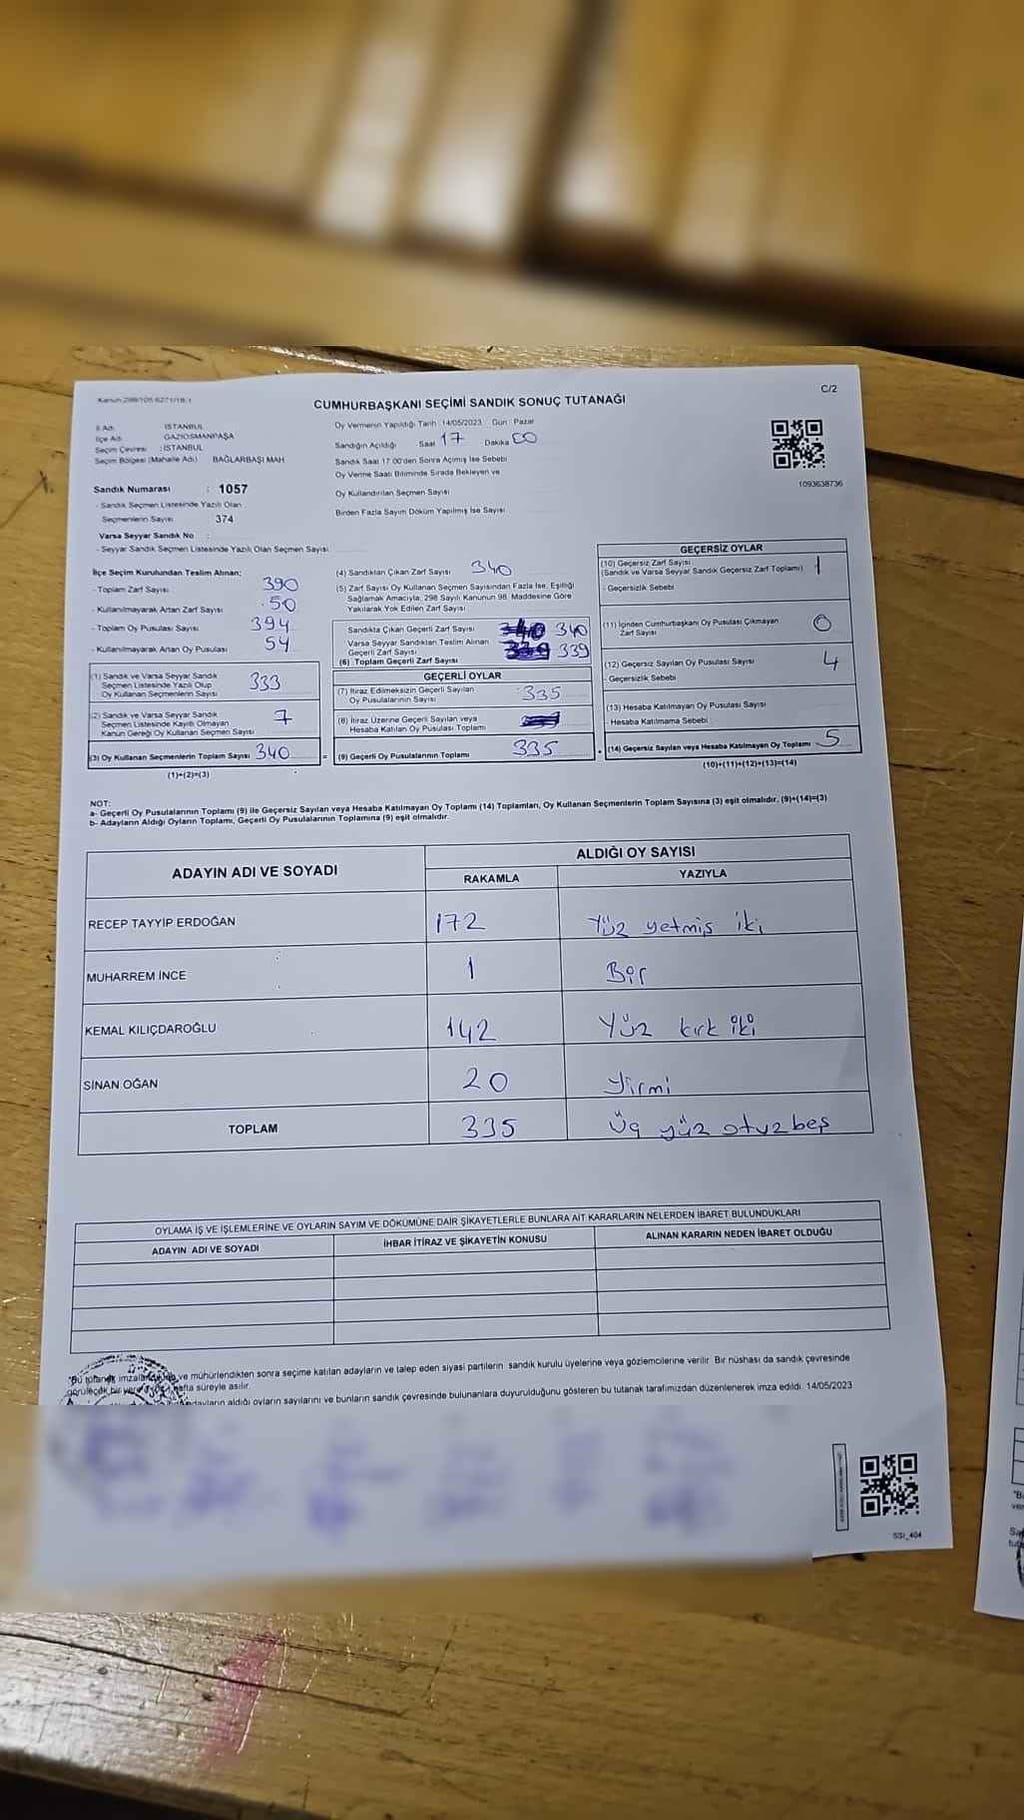 Kanun 298/105 6271/18-1
C/2
CUMHURBAŞKANI SEÇİMİ SANDIK SONUÇ TUTANAĞI
İl Adı : İSTANBUL
İlçe Adı : GAZİOSMANPAŞA
Seçim Çevresi : İSTANBUL
Seçim Bölgesi (Mahalle Adı) BAĞLARBAŞI MAH
Sandık Numarası : 1057
- Sandık Seçmen Listesinde Yazılı Olan
Seçmenlerin Sayısı 374
Varsa Seyyar Sandık No :
- Seyyar Sandık Seçmen Listesinde Yazılı Olan Seçmen Sayısı
Oy Vermenin Yapıldığı Tarih :14/05/2023 Gün : Pazar
Sandığın Açıldığı Saat 17 Dakika 00
Sandık Saat 17:00'den Sonra Açılmış İse Sebebi
Oy Verme Saati Bitiminde Sırada Bekleyen ve
Oy Kullandırılan Seçmen Sayısı
Birden Fazla Sayım Döküm Yapılmış İse Sayısı
1093638736
İlçe Seçim Kurulundan Teslim Alınan;
- Toplam Zarf Sayısı 390
- Kullanılmayarak Artan Zarf Sayısı 50
- Toplam Oy Pusulası Sayısı 394
- Kullanılmayarak Artan Oy Pusulası 54
(1) Sandık ve Varsa Seyyar Sandık
Seçmen Listesinde Yazılı Olup
Oy Kullanan Seçmenlerin Sayısı 333
(2) Sandık ve Varsa Seyyar Sandık
Seçmen Listesinde Kayıtlı Olmayan
Kanun Gereği Oy Kullanan Seçmen Sayısı 7
(3) Oy Kullanan Seçmenlerin Toplam Sayısı 340
(1)+(2)=(3)
(4) Sandıktan Çıkan Zarf Sayısı 340
(5) Zarf Sayısı Oy Kullanan Seçmen Sayısından Fazla İse, Eşitliği
Sağlamak Amacıyla, 298 Sayılı Kanunun 98. Maddesine Göre
Yakılarak Yok Edilen Zarf Sayısı
Sandıkta Çıkan Geçerli Zarf Sayısı 340 340
Varsa Seyyar Sandıktan Teslim Alınan
Geçerli Zarf Sayısı 339 339
(6) Toplam Geçerli Zarf Sayısı
GEÇERLİ OYLAR
(7) İtiraz Edilmeksizin Geçerli Sayılan
Oy Pusulalarının Sayısı 335
(8) İtiraz Üzerine Geçerli Sayılan veya
Hesaba Katılan Oy Pusulası Toplamı
= (9) Geçerli Oy Pusulalarının Toplamı 335
GEÇERSİZ OYLAR
(10) Geçersiz Zarf Sayısı
(Sandık ve Varsa Seyyar Sandık Geçersiz Zarf Toplamı) 1
- Geçersizlik Sebebi
(11) İçinden Cumhurbaşkanı Oy Pusulası Çıkmayan
Zarf Sayısı 0
(12) Geçersiz Sayılan Oy Pusulası Sayısı 4
- Geçersizlik Sebebi
(13) Hesaba Katılmayan Oy Pusulası Sayısı
- Hesaba Katılmama Sebebi
+ (14) Geçersiz Sayılan veya Hesaba Katılmayan Oy Toplamı 5
(10)+(11)+(12)+(13)=(14)
NOT:
a- Geçerli Oy Pusulalarının Toplamı (9) ile Geçersiz Sayılan veya Hesaba Katılmayan Oy Toplamı (14) Toplamları, Oy Kullanan Seçmenlerin Toplam Sayısına (3) eşit olmalıdır. (9)+(14)=(3)
b- Adayların Aldığı Oyların Toplamı, Geçerli Oy Pusulalarının Toplamına (9) eşit olmalıdır.
ADAYIN ADI VE SOYADI ALDIĞI OY SAYISI
RAKAMLA YAZIYLA
RECEP TAYYİP ERDOĞAN 172 Yüz yetmiş iki
MUHARREM İNCE 1 Bir
KEMAL KILIÇDAROĞLU 142 Yüz kırk iki
SİNAN OĞAN 20 Yirmi
TOPLAM 335 Üç yüz otuz beş
OYLAMA İŞ VE İŞLEMLERİNE VE OYLARIN SAYIM VE DÖKÜMÜNE DAİR ŞİKAYETLERLE BUNLARA AİT KARARLARIN NELERDEN İBARET BULUNDUKLARI
ADAYIN ADI VE SOYADI İHBAR İTİRAZ VE ŞİKAYETİN KONUSU ALINAN KARARIN NEDEN İBARET OLDUĞU
"Bu tutanak ve mühürlendikten sonra seçime katılan adayların ve talep eden siyasi partilerin sandık kurulu üyelerine veya gözlemcilerine verilir. Bir nüshası da sandık çevresinde
görülecek bir yere hafta süreyle asılır.
aldığı oyların sayılarını ve bunların sandık çevresinde bulunanlara duyurulduğunu gösteren bu tutanak tarafımızdan düzenlenerek imza edildi. 14/05/2023
SSI_404